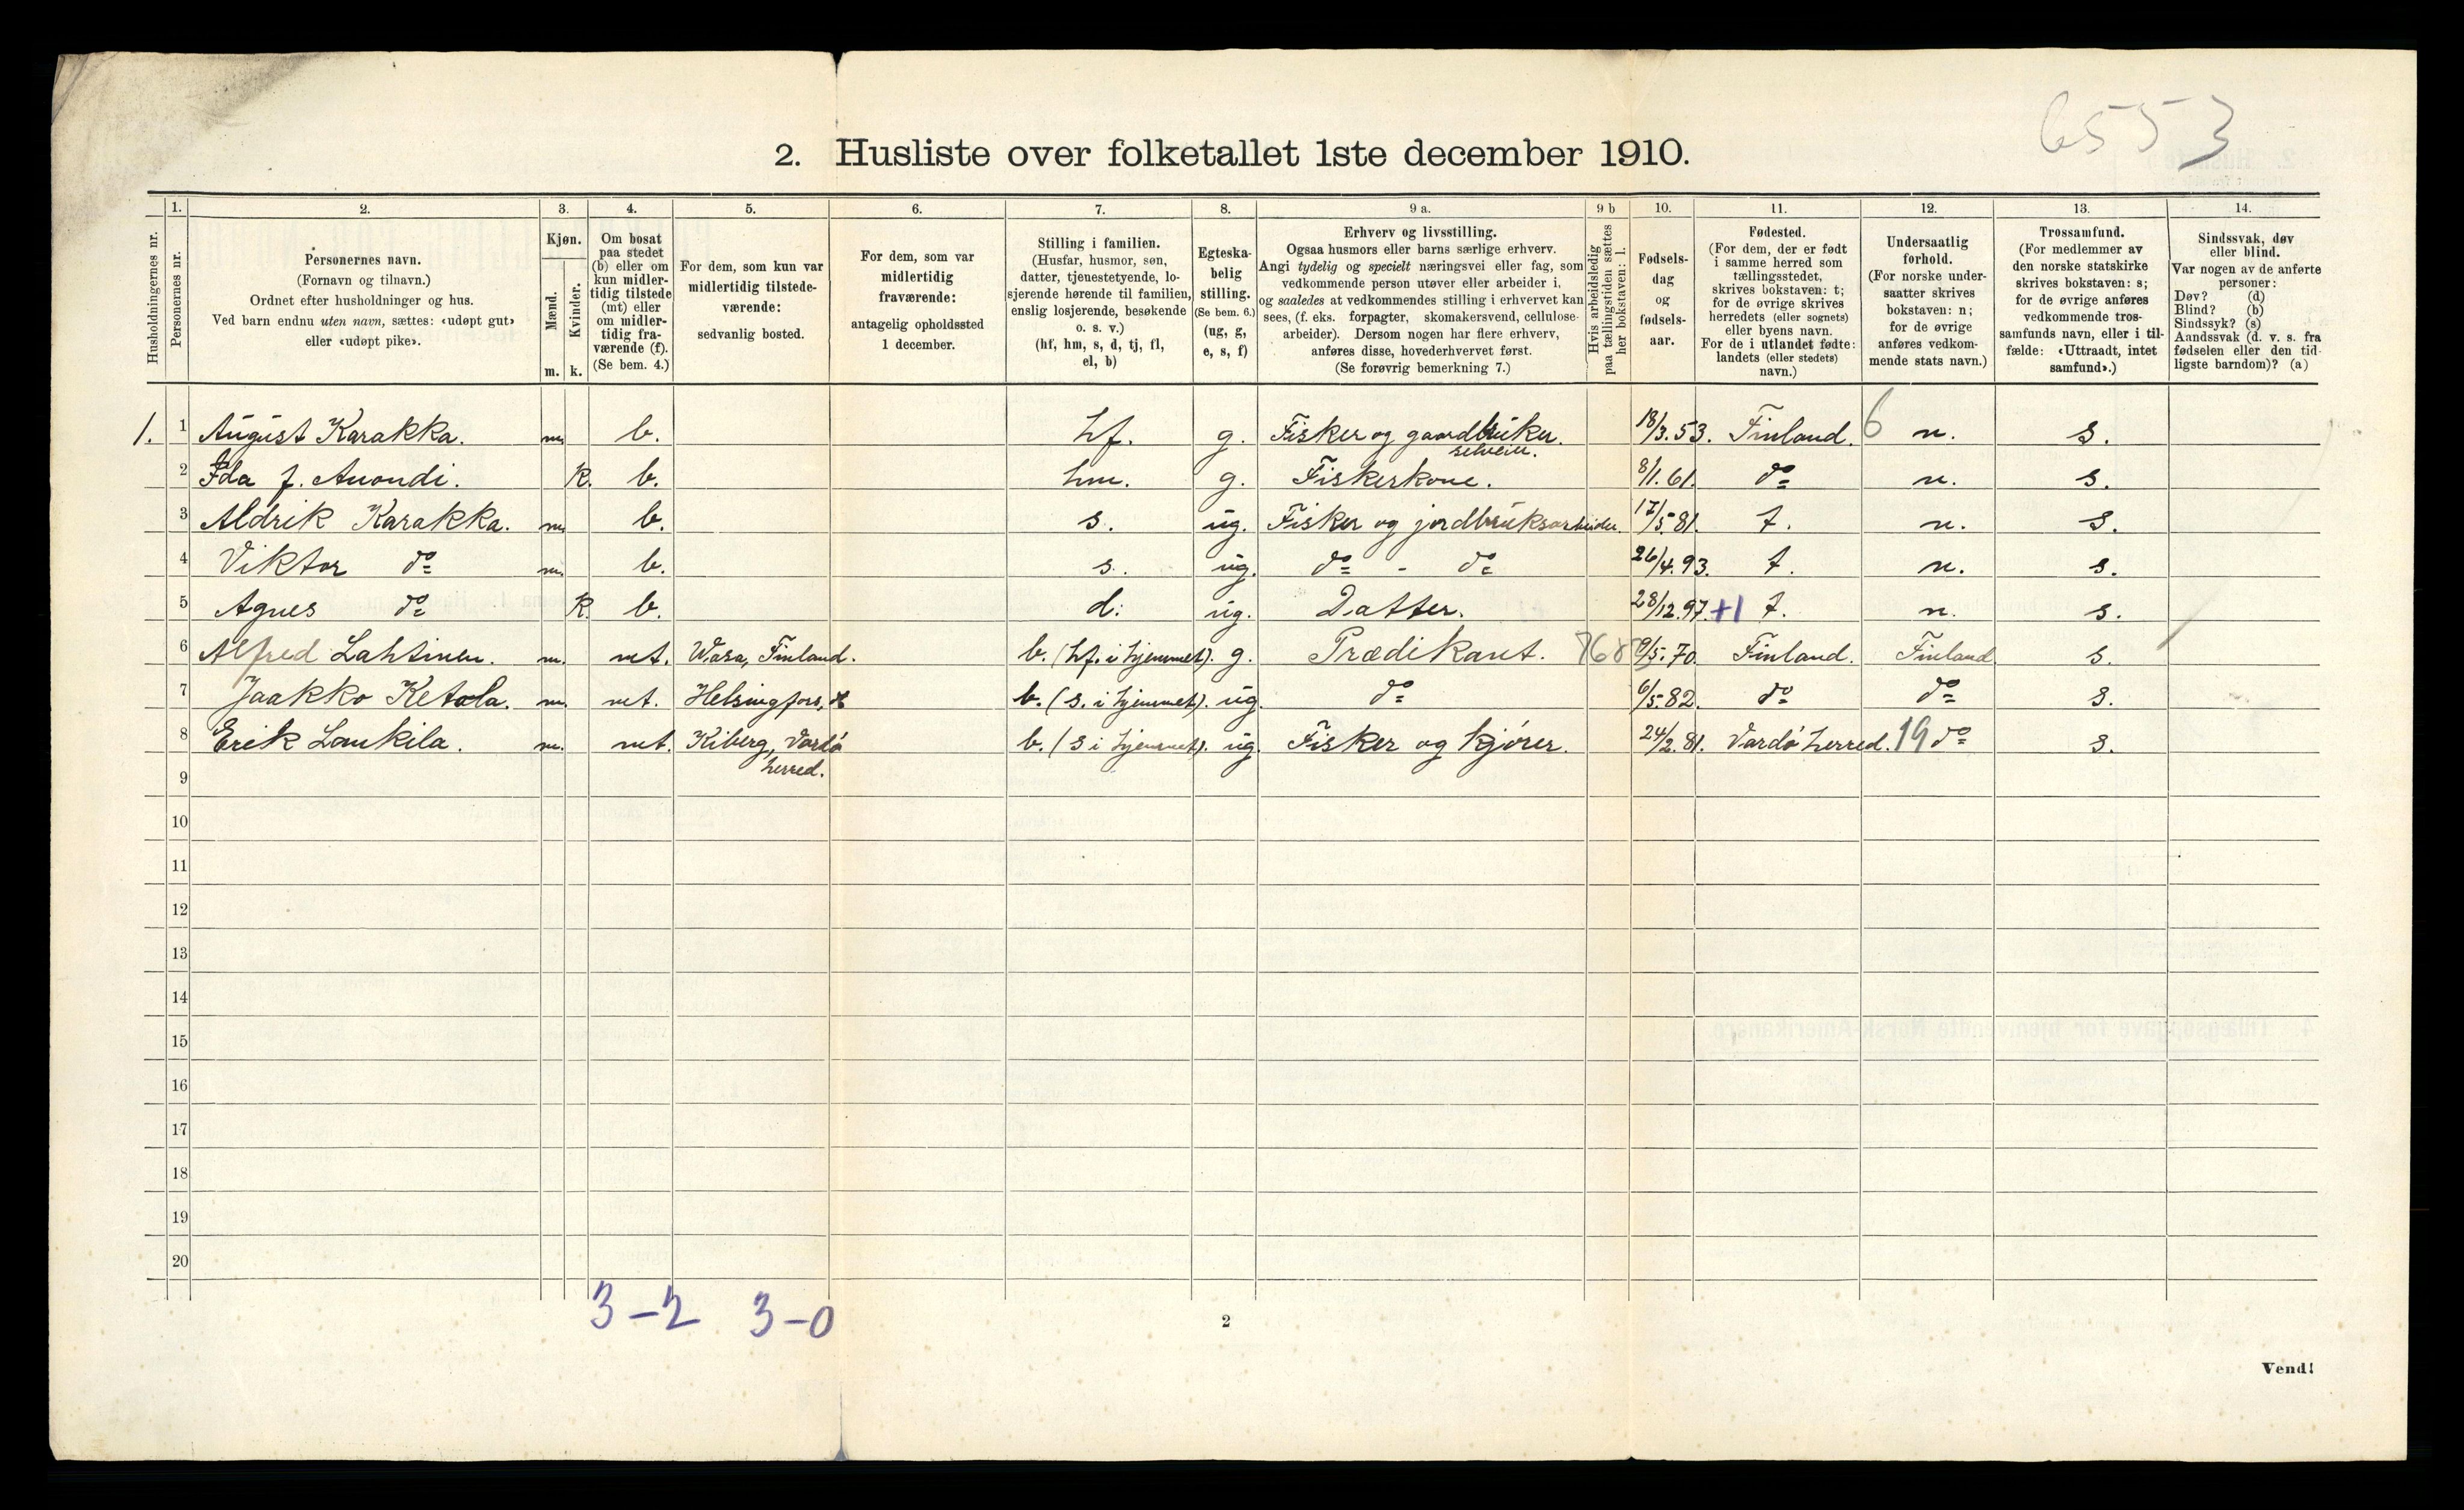 6553
2. Husliste over folketallet 1ste december 1910.
Husholdningernes nr.
1. Personernes nr.
2. Personernes navn. (Fornavn og tilnavn.) Ordnet efter husholdninger og hus. Ved barn endnu uten navn, sættes: «udøpt gut» eller «udøpt pike».
3. Kjøn. Mænd. m. Kvinder. k.
4. Om bosat paa stedet (b) eller om kun midlertidig tilstede (mt) eller om midlertidig fraværende (f). (Se bem. 4.)
5. For dem, som kun var midlertidig tilstedeværende: sedvanlig bosted.
6. For dem, som var midlertidig fraværende: antagelig opholdssted 1 december.
7. Stilling i familien. (Husfar, husmor, søn, datter, tjenestetyende, losjerende hørende til familien, enslig losjerende, besøkende o. s. v.) (hf, hm, s, d, tj, fl, el, b)
8. Egteskabelig stilling. (Se bem. 6.) (ug, g, e, s, f)
9 a. Erhverv og livsstilling. Ogsaa husmors eller barns særlige erhverv. Angi tydelig og specielt næringsvei eller fag, som vedkommende person utøver eller arbeider i, og saaledes at vedkommendes stilling i erhvervet kan sees, (f. eks. forpagter, skomakersvend, cellulosearbeider). Dersom nogen har flere erhverv, anføres disse, hovederhvervet først. (Se forøvrig bemerkning 7.)
9 b Hvis arbeidsledig paa tællingstiden sættes her bokstaven: l.
10. Fødselsdag og fødselsaar.
11. Fødested. (For dem, der er født i samme herred som tællingsstedet, skrives bokstaven: t; for de øvrige skrives herredets (eller sognets) eller byens navn. For de i utlandet fødte: landets (eller stedets) navn.)
12. Undersaatlig forhold. (For norske undersaatter skrives bokstaven: n; for de øvrige anføres vedkommende stats navn.)
13. Trossamfund. (For medlemmer av den norske statskirke skrives bokstaven: s; for de øvrige anføres vedkommende trossamfunds navn, eller i tilfælde: «Uttraadt, intet samfund».)
14. Sindssvak, døv eller blind. Var nogen av de anførte personer: Døv? (d) Blind? (b) Sindssyk? (s) Aandssvak (d. v. s. fra fødselen eller den tidligste barndom)? (a)
1. 1 August Karakka. m. b. hf. g. Fisker og gaardbruker. selveier. 18/3.53. Finland. 6 n. s.
2 Ida f. Anondi. k. b. hm. g. Fiskerkone. 8/1.61. do n. s.
3 Aldrik Karakka. m. b. s. ug. Fisker og jordbruksarbeider. 17/5.81. t. n. s.
4 Viktor do m. b. s. ug. do - do 26/4.93. t. n. s.
5 Agnes do k. b. d. ug. Datter. 28/12.97. +1 t. n. s.
6 Alfred Lahtinen. m. mt. Wasa, Finland. b. (hf. i hjemmet). g. Prædikant. 9/5.70. Finland. Finland s.
7 Jaakko Ketola. m. mt. Helsingfors, b. (s. i hjemmet). ug. do 6/5.82. do do s.
8 Erik Laukila. m. mt. Kiberg, Vardø herred. b. (s i hjemmet). ug. Fisker og kjører. 24/2.81. Vardø herred. 19 do s.
9
10
11
12
13
14
15
16
17
18
19
20
3-2 3-0
2
Vend!